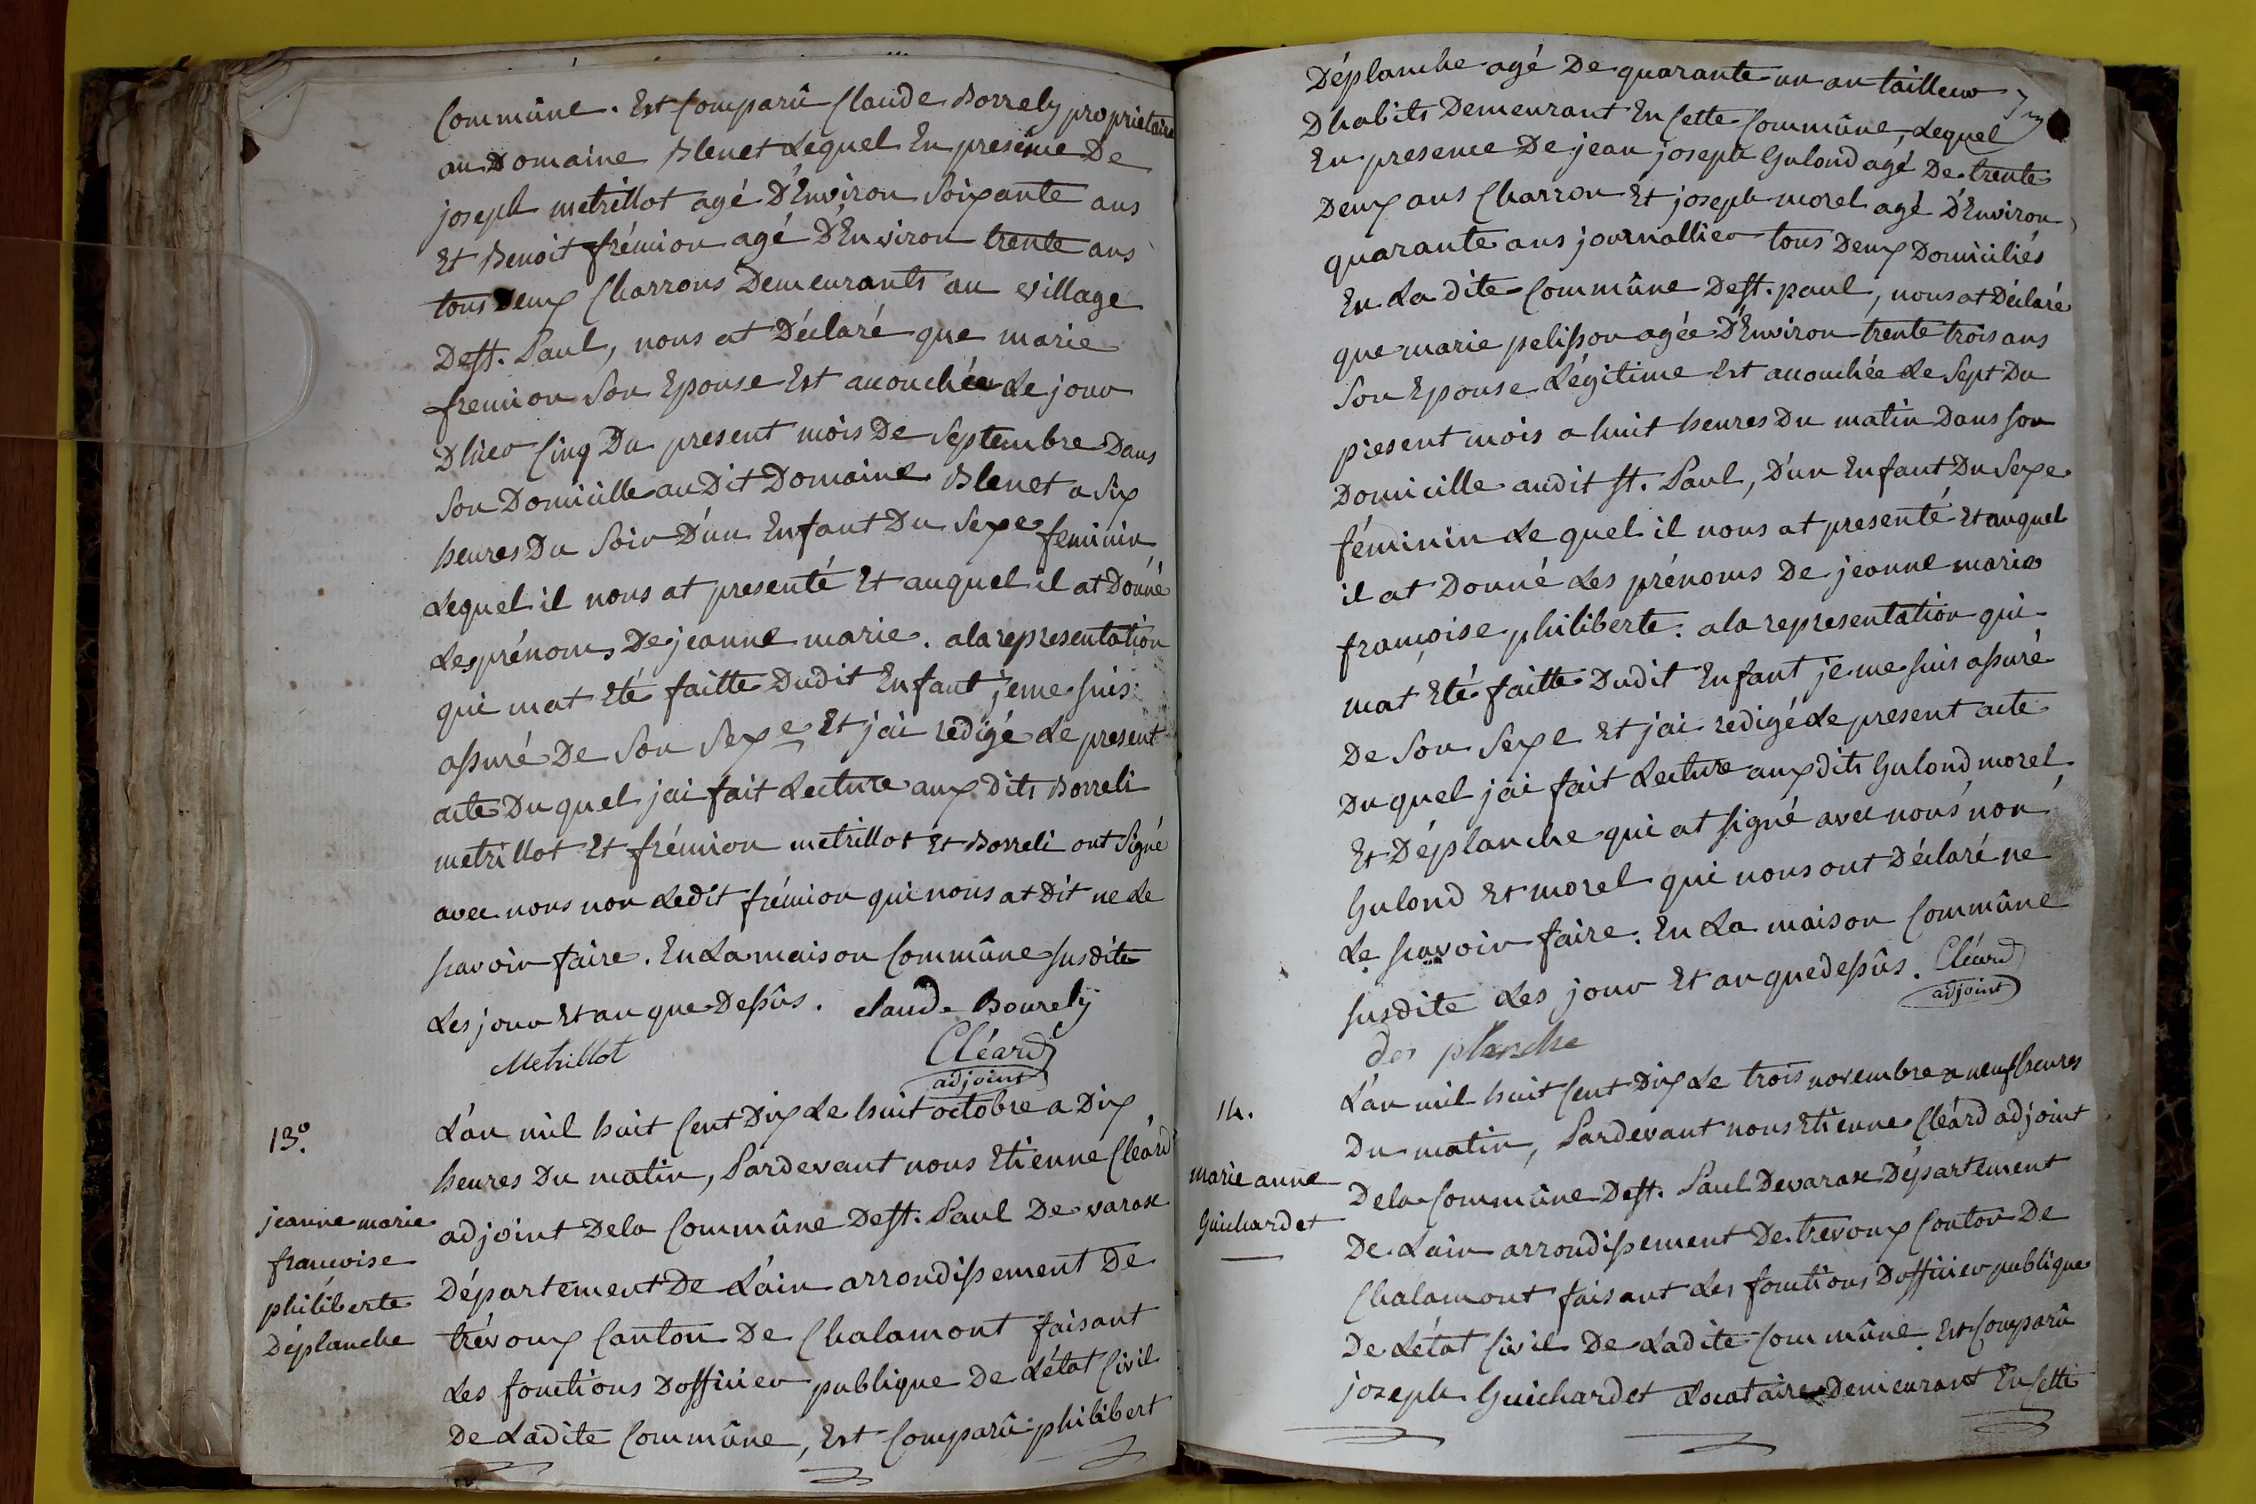 Commûne. Est Comparû Claude Borrely propriétaire
au Domaine Blenet Lequel En presence De
joseph metrillot agé D'Environ Soixante ans
Et Benoit frémion agé D'Environ trente ans
tous Deux Charrons Demeurants au village
De St. Paul, nous at Déclaré que marie
fremion Son Epouse Est accouchée Le jour
Dhier Cinq Du present mois De Septembre Dans
Son Domicille au Dit Domaine Blenet a Six
heures Du Soir D'un Enfant Du Sexe feminin
Lequel il nous at presenté Et auquel il at Donné
Les prénoms De jeanne marie. a la representation
qui mat Eté faitte Dudit Enfant je me suis
assuré De Son Sexe Et jai redigé Le present
acte Du quel jai fait Lecture aux Dits Borreli
metrillot Et frémion metrillot Et Borreli ont Signé
avec nous non Ledit frémion qui nous at Dit ne Le
scavoir faire. En La maison Commûne susdite
Les jour Et an que Dessûs. claude Bourely
Metrillot Cléard
adjoint
13°.
jeanne marie
francoise
philiberte
Déplanche
L'an mil huit Cent Dix Le huit octobre a Dix
heures Du matin, Pardevant nous Etienne Cléard
adjoint De la Commûne De St. Paul De varax
Département De L'ain arrondissement De
trévoux Canton De Chalamont faisant
Les fonctions Dofficier publique De L'état Civil
De Ladite Commûne, Est Comparû philibert
Déplanche agé De quarante un an tailleur
Dhabits Demeurant En Cette Commûne, Lequel
En presence De jean joseph Gulond agé De trente
Deux ans Charron Et joseph morel agé D'Environ
quarante ans journallier tous Deux Domiciliés
En La dite Commûne De St. paul, nous at Déclaré
que marie pelisson agée D'Environ trente trois ans
Son Epouse Légitime Est accouchée Le Sept Du
present mois a huit heures Du matin Dans son
Domicille audit St. Paul, D'un Enfant Du Sexe
féminin Le quel il nous at presenté Et auquel
il at Donné Les prénoms De jeanne marie
françoise philiberte. a la representation qui
mat Eté faitte Dudit Enfant je me suis assuré
De Son Sexe Et jai redigé Le present acte
Du quel jai fait Lecture aux dits Gulond morel
Et Déplanche qui at signé avec nous non
Gulond Et morel qui nous ont Déclaré ne
Le scavoir faire. En La maison Commûne
susdite Les jour Et an que dessûs. Cléard
adjoint
des planche
14.
marie anne
Guichardet
L'an mil huit Cent Dix Le trois novembre a neuf heures
Du matin, Pardevant nous Etienne Cléard adjoint
De la Commûne De St. Paul De varax Département
De L'ain arrondissement De trevoux Canton De
Chalamont faisant Les fonctions Dofficier publique
De Létat Civil De Ladite Commûne. Est Comparû
joseph Guichardet Locataire Demeurant En Cette